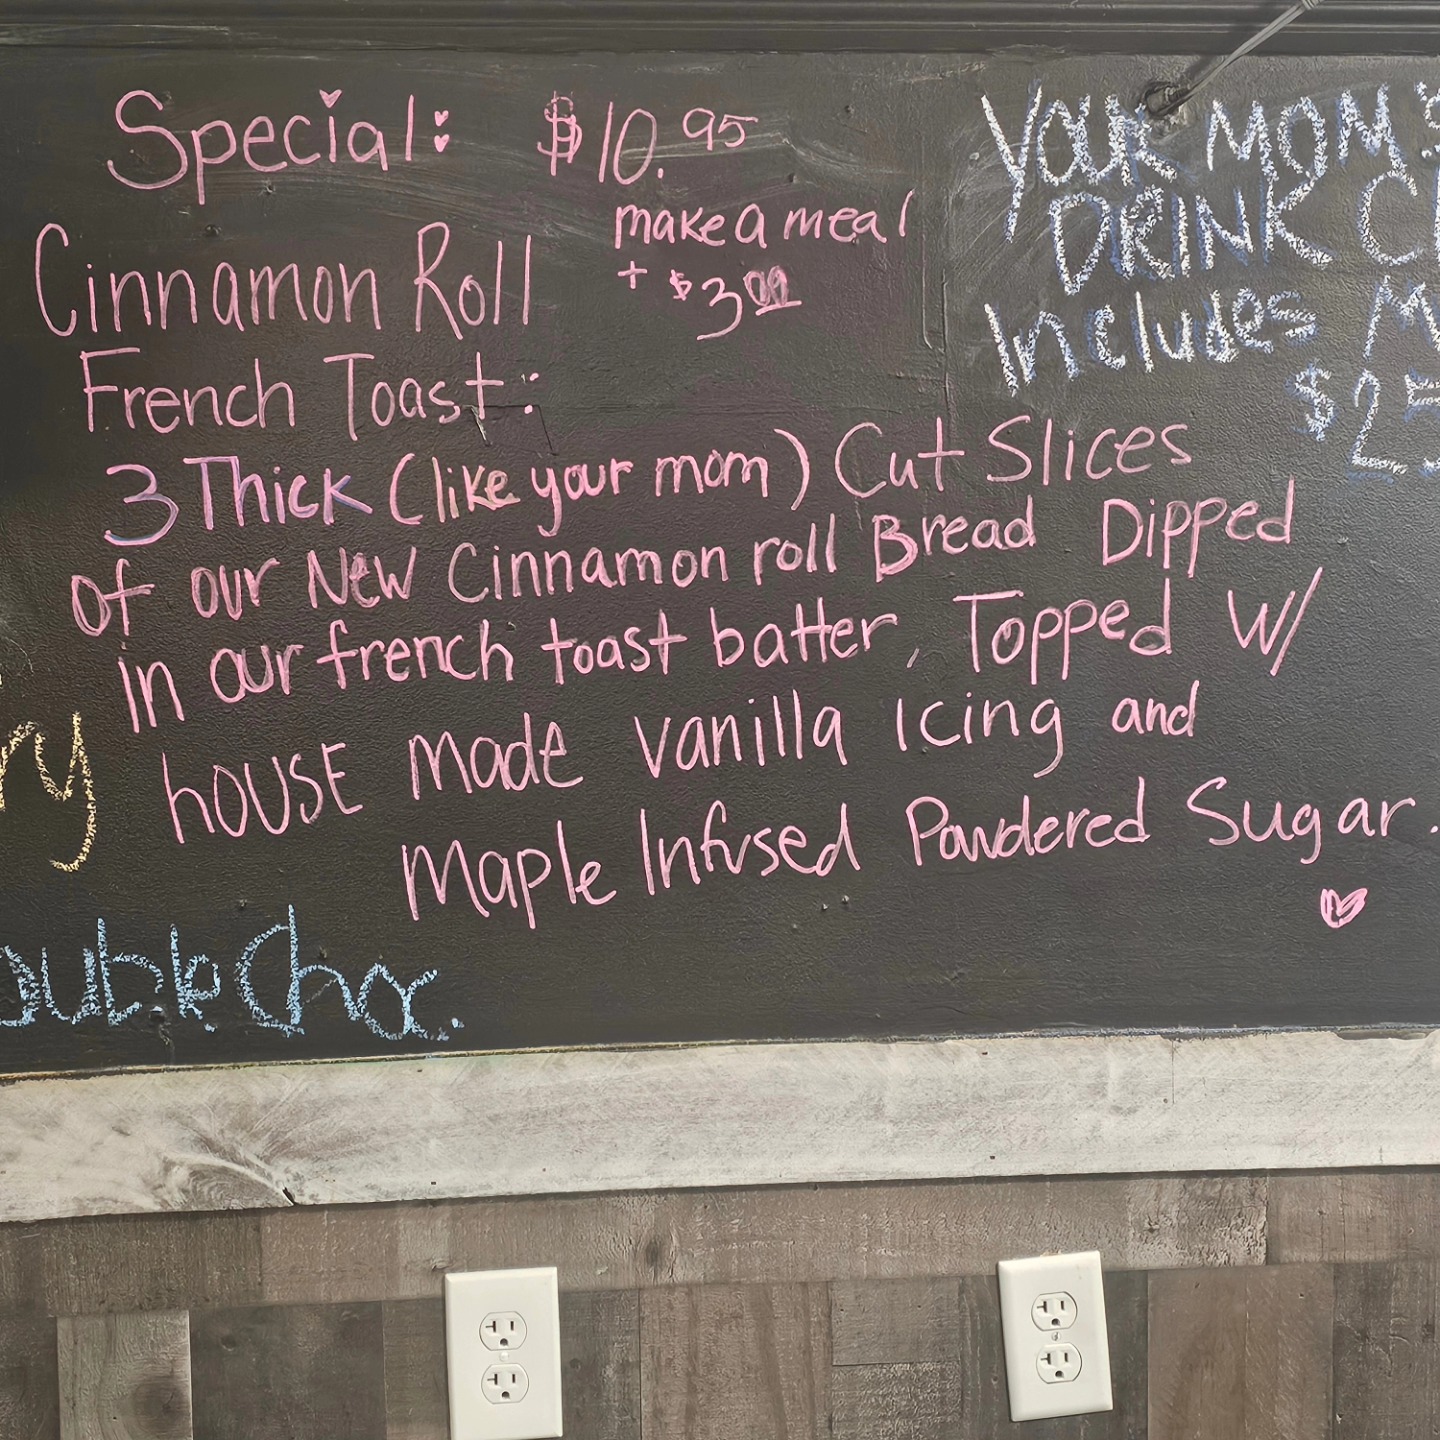 Special: $10.95
make a meal
+ $3.00
Cinnamon Roll
French Toast:
3 Thick (like your mom) Cut Slices
of our New Cinnamon roll Bread Dipped
in our french toast batter, Topped w/
house made vanilla icing and
Maple Infused Powdered Sugar.
YOUR MOM'S
DRINK
Includes
$25
ry
ouble Choc.